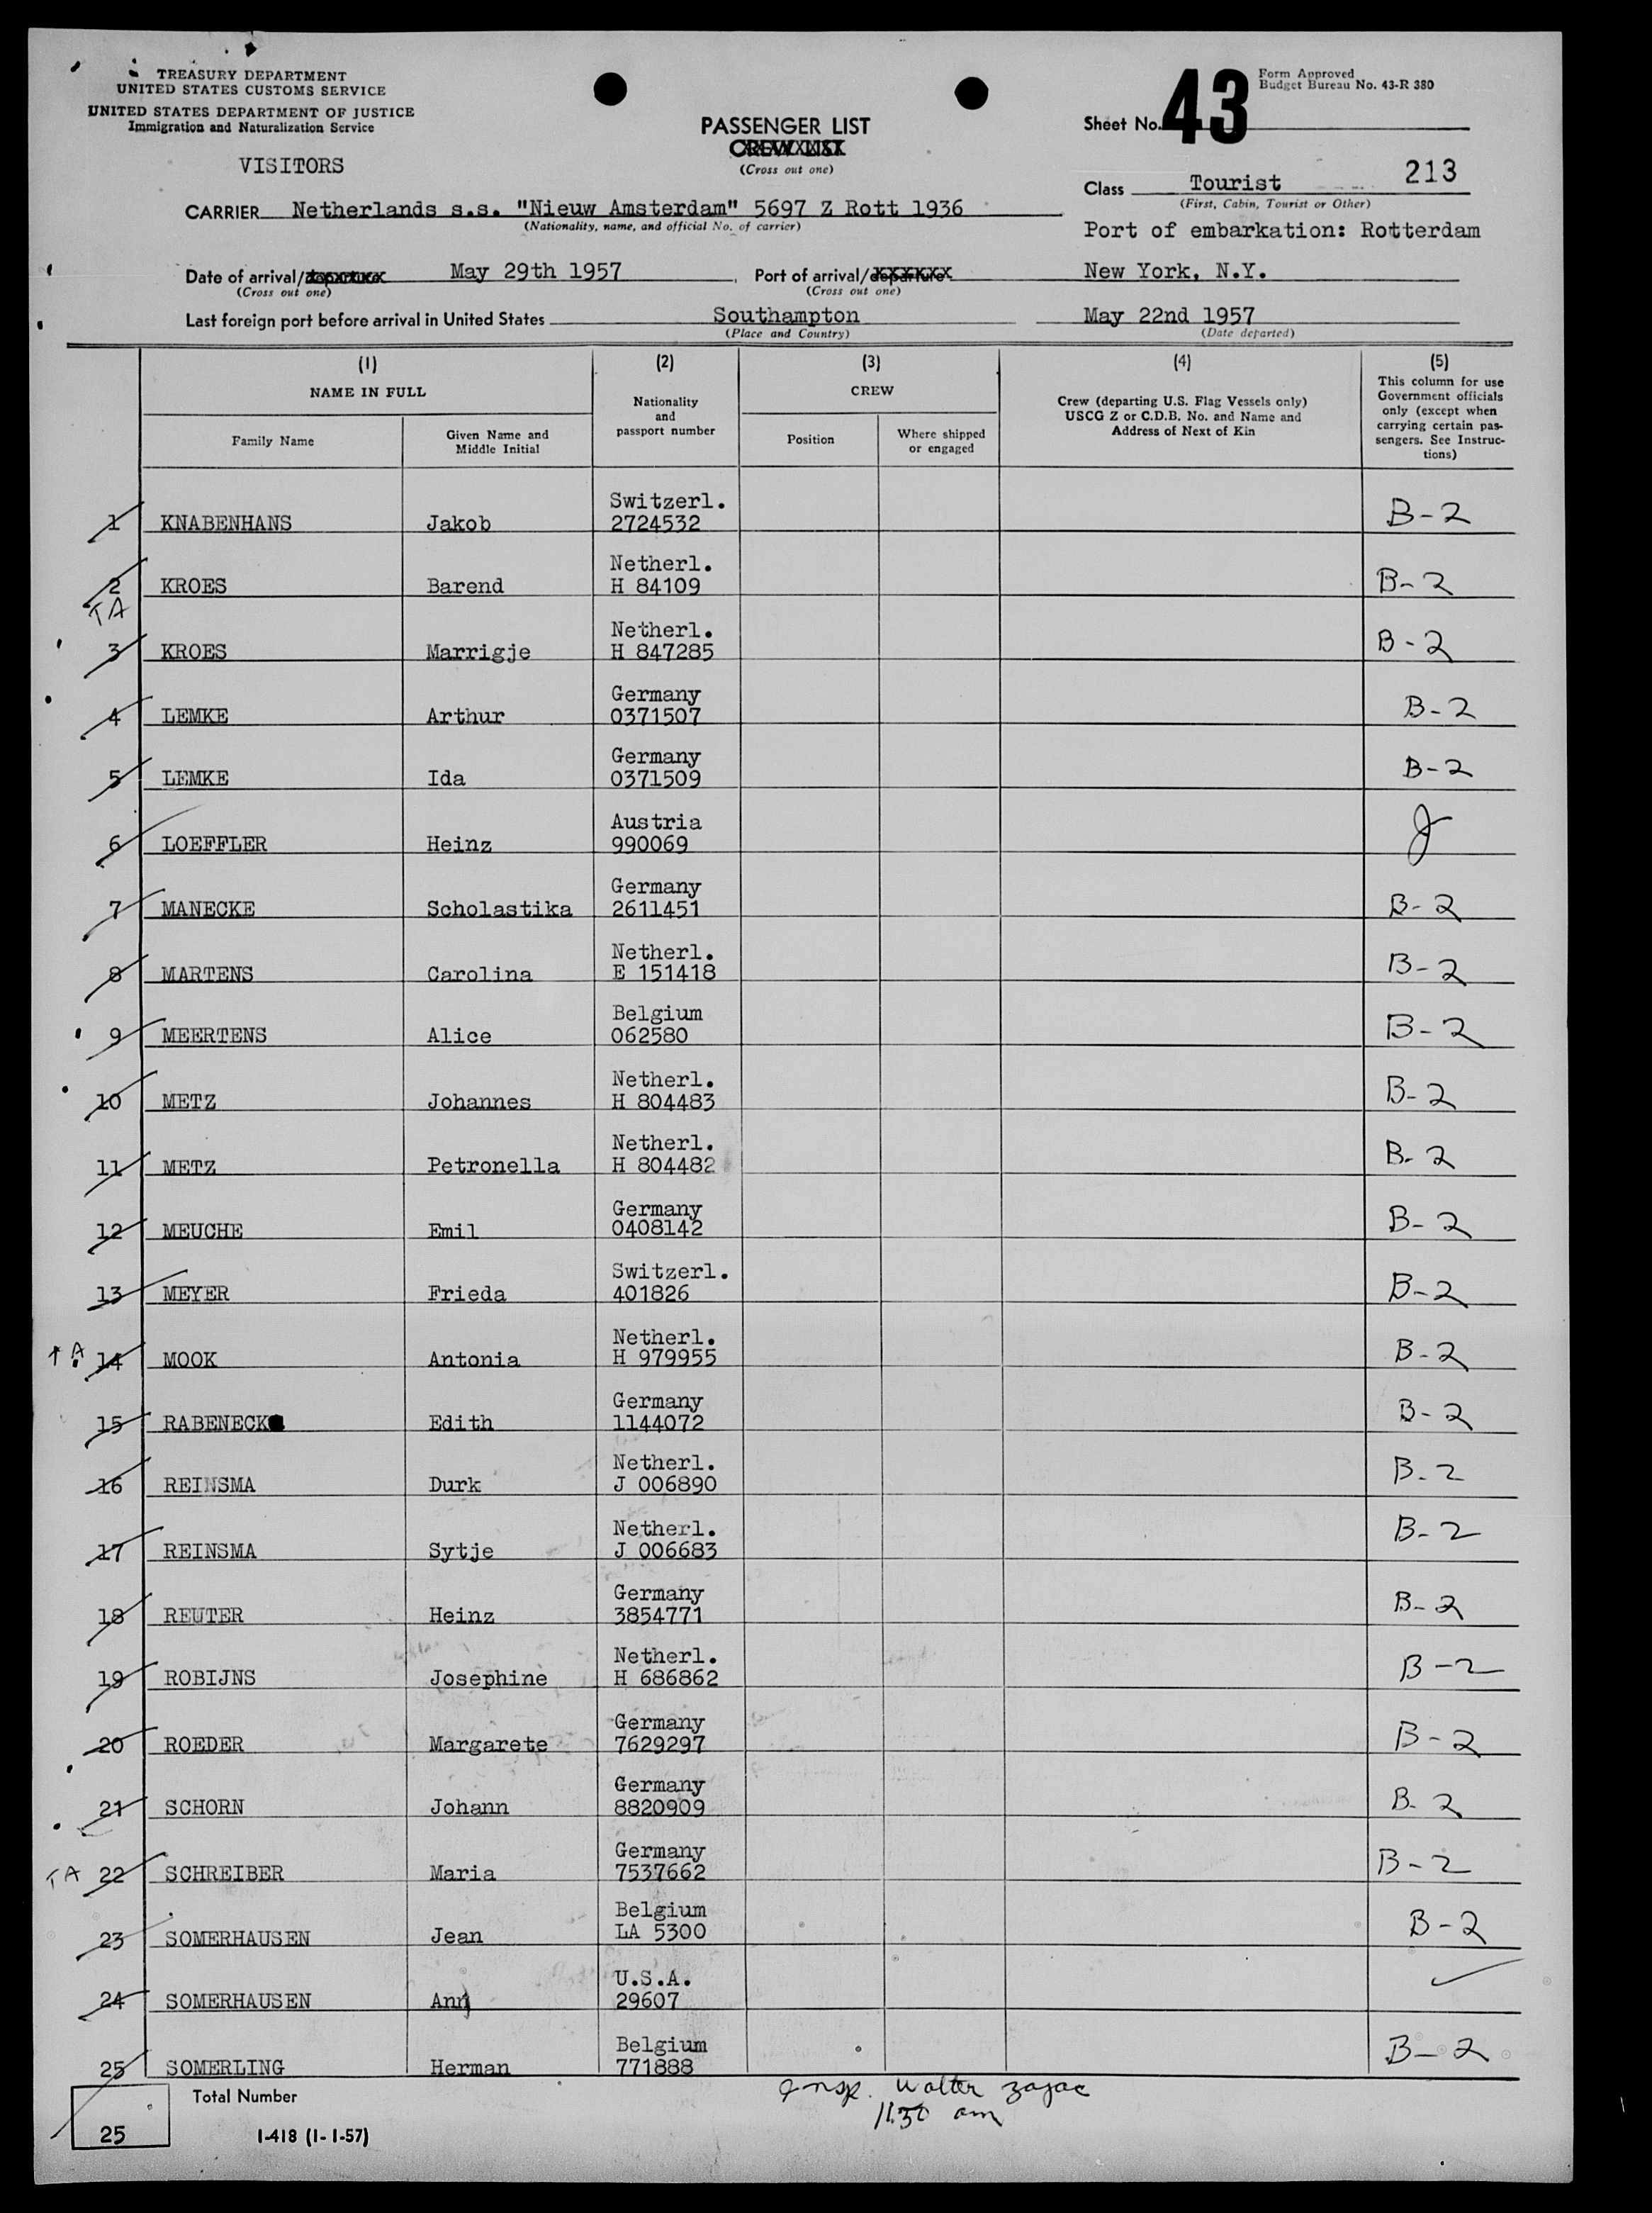 TREASURY DEPARTMENT
UNITED STATES CUSTOMS SERVICE
UNITED STATES DEPARTMENT OF JUSTICE
Immigration and Naturalization Service
VISITORS
PASSENGER LIST
CREW LIST
(Cross out one)
Form Approved
Budget Bureau No. 43-R 380
Sheet No. 43
Class Tourist 213
(First, Cabin, Tourist or Other)
CARRIER Netherlands s.s. "Nieuw Amsterdam" 5697 Z Rott 1936
(Nationality, name, and official No. of carrier)
Port of embarkation: Rotterdam
Date of arrival/departure May 29th 1957, Port of arrival/departure New York, N.Y.
(Cross out one) (Cross out one)
Last foreign port before arrival in United States Southampton May 22nd 1957
(Place and Country) (Date departed)
(1) (2) (3) (4) (5)
NAME IN FULL
Family Name
Given Name and
Middle Initial
Nationality
and
passport number
CREW
Position
Where shipped
or engaged
Crew (departing U.S. Flag Vessels only)
USCG Z or C.D.B. No. and Name and
Address of Next of Kin
This column for use
Government officials
only (except when
carrying certain pas-
sengers. See Instruc-
tions)
Switzerl.
1 KNABENHANS Jakob 2724532 B-2
Netherl.
2 KROES Barend H 84109 B-2
TA
Netherl.
3 KROES Marrigje H 847285 B-2
Germany
4 LEMKE Arthur 0371507 B-2
Germany
5 LEMKE Ida 0371509 B-2
Austria
6 LOEFFLER Heinz 990069 J
Germany
7 MANECKE Scholastika 2611451 B-2
Netherl.
8 MARTENS Carolina E 151418 B-2
Belgium
9 MEERTENS Alice 062580 B-2
Netherl.
10 METZ Johannes H 804483 B-2
Netherl.
11 METZ Petronella H 804482 B-2
Germany
12 MEUCHE Emil 0408142 B-2
Switzerl.
13 MEYER Frieda 401826 B-2
Netherl.
TA 14 MOOK Antonia H 979955 B-2
Germany
15 RABENECK Edith 1144072 B-2
Netherl.
16 REINSMA Durk J 006890 B-2
Netherl.
17 REINSMA Sytje J 006683 B-2
Germany
18 REUTER Heinz 3854771 B-2
Netherl.
19 ROBIJNS Josephine H 686862 B-2
Germany
20 ROEDER Margarete 7629297 B-2
Germany
21 SCHORN Johann 8820909 B-2
Germany
TA 22 SCHREIBER Maria 7537662 B-2
Belgium
23 SOMERHAUSEN Jean LA 5300 B-2
U.S.A.
24 SOMERHAUSEN Ann 29607
Belgium
25 SOMERLING Herman 771888 B-2
Total Number
25
I-418 (1-1-57)
Insp. Walter Zajac
11:30 am